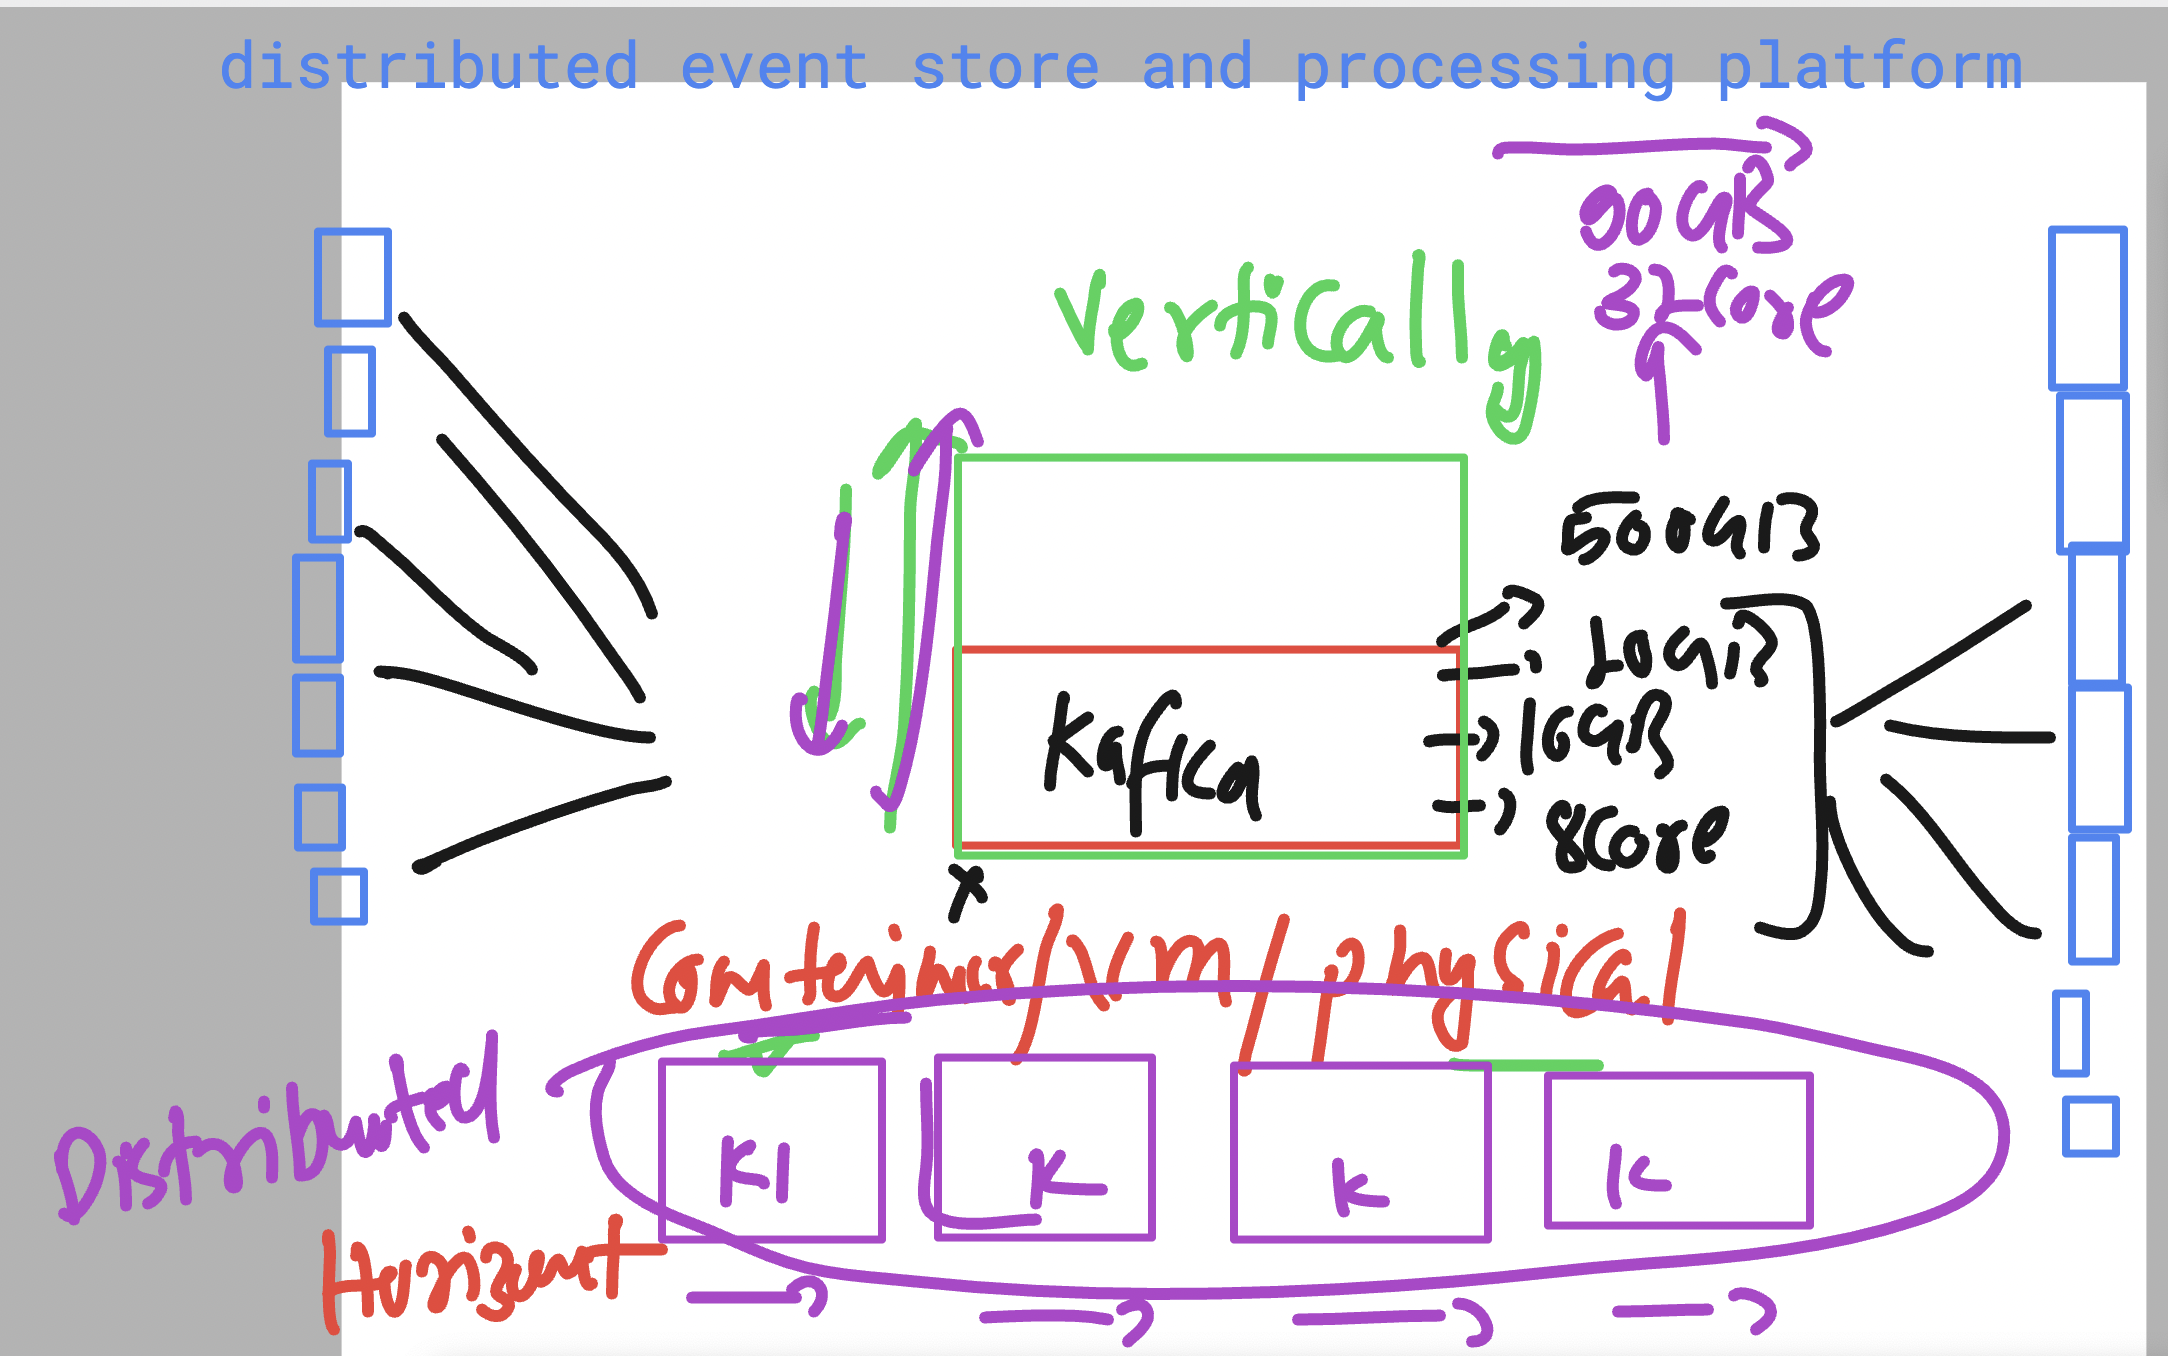 distributed event store and processing platform
90GB
32Core
Vertically
500GB
20GB
16GB
8Core
Kafka
x
Conteiner/VM/physical
Distributed
K1 K K K
Horizont